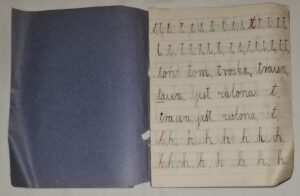 t t t t t t t t t t t
t t t t t t t t t t t t
toń tom, troska, trawa,
ława jest zielona t,
trawa jest zielona, t,
h h, h h, h h, h h,
h h, h h, h h, h, h,